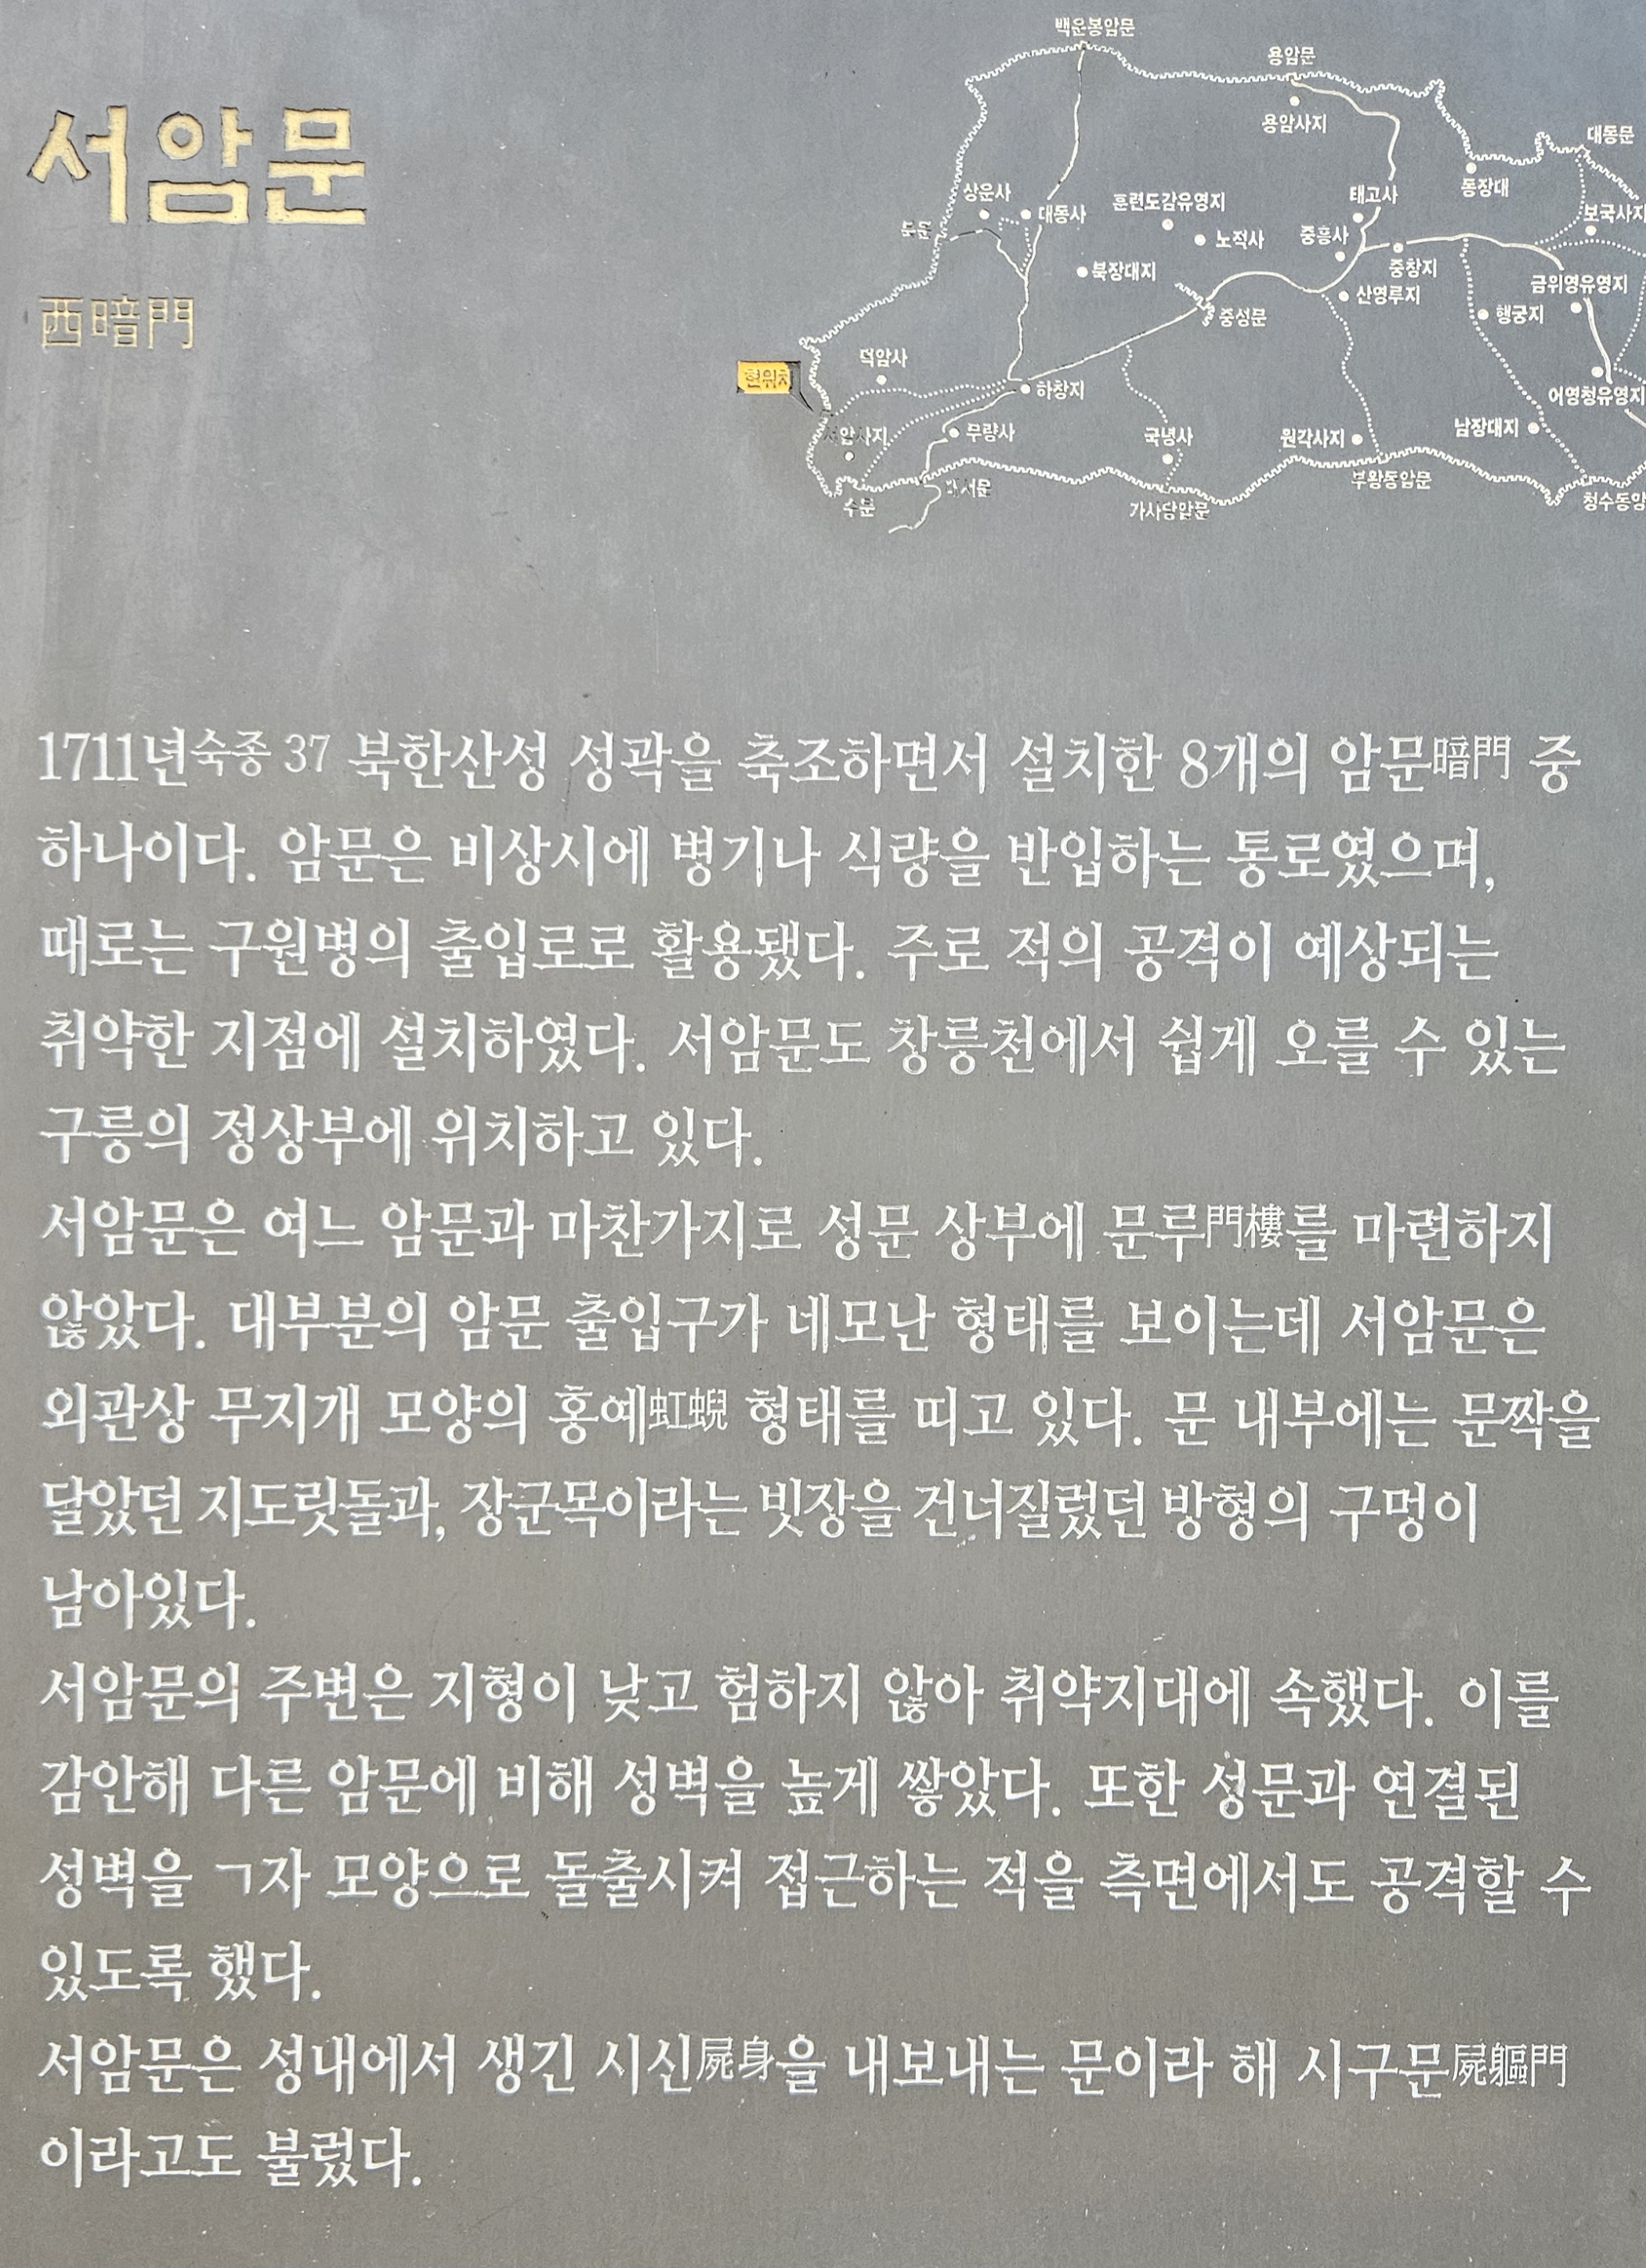 서암문
西暗門
백운봉암문
용암문
용암사지
대동문
동장대
상운사
대동사
훈련도감유영지
태고사
보국사지
북문
노적사
중흥사
북장대지
중창지
산영루지
금위영유영지
중성문
행궁지
덕암사
현위치
하창지
어영청유영지
서암사지
무량사
국녕사
원각사지
남장대지
수문
대서문
가사당암문
부왕동암문
청수동암
1711년숙종 37 북한산성 성곽을 축조하면서 설치한 8개의 암문暗門 중
하나이다. 암문은 비상시에 병기나 식량을 반입하는 통로였으며,
때로는 구원병의 출입로로 활용됐다. 주로 적의 공격이 예상되는
취약한 지점에 설치하였다. 서암문도 창릉천에서 쉽게 오를 수 있는
구릉의 정상부에 위치하고 있다.
서암문은 여느 암문과 마찬가지로 성문 상부에 문루門樓를 마련하지
않았다. 대부분의 암문 출입구가 네모난 형태를 보이는데 서암문은
외관상 무지개 모양의 홍예虹蜺 형태를 띠고 있다. 문 내부에는 문짝을
달았던 지도릿돌과, 장군목이라는 빗장을 건너질렀던 방형의 구멍이
남아있다.
서암문의 주변은 지형이 낮고 험하지 않아 취약지대에 속했다. 이를
감안해 다른 암문에 비해 성벽을 높게 쌓았다. 또한 성문과 연결된
성벽을 ㄱ자 모양으로 돌출시켜 접근하는 적을 측면에서도 공격할 수
있도록 했다.
서암문은 성내에서 생긴 시신屍身을 내보내는 문이라 해 시구문屍軀門
이라고도 불렀다.